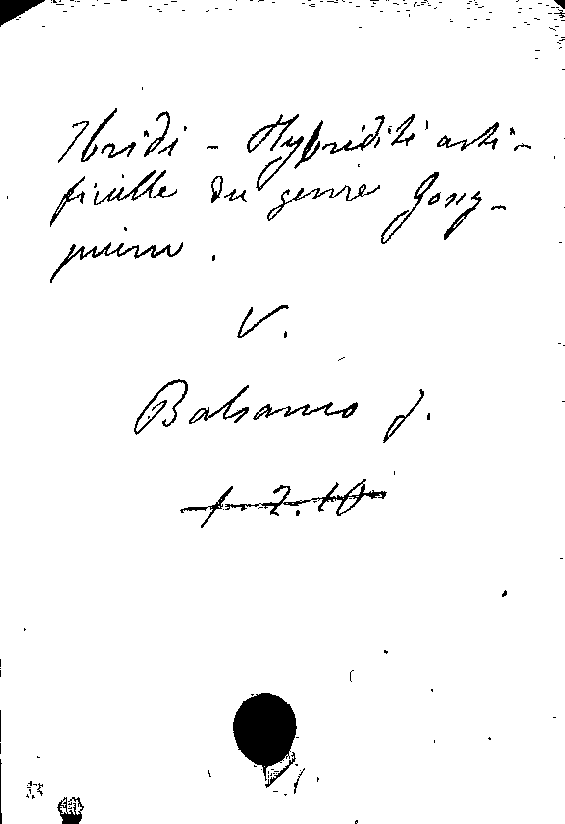 Ibridi - Hybridité arti-
ficielle du genre Gossy-
pium.
V.
Balsamo J.
1. 2. 10